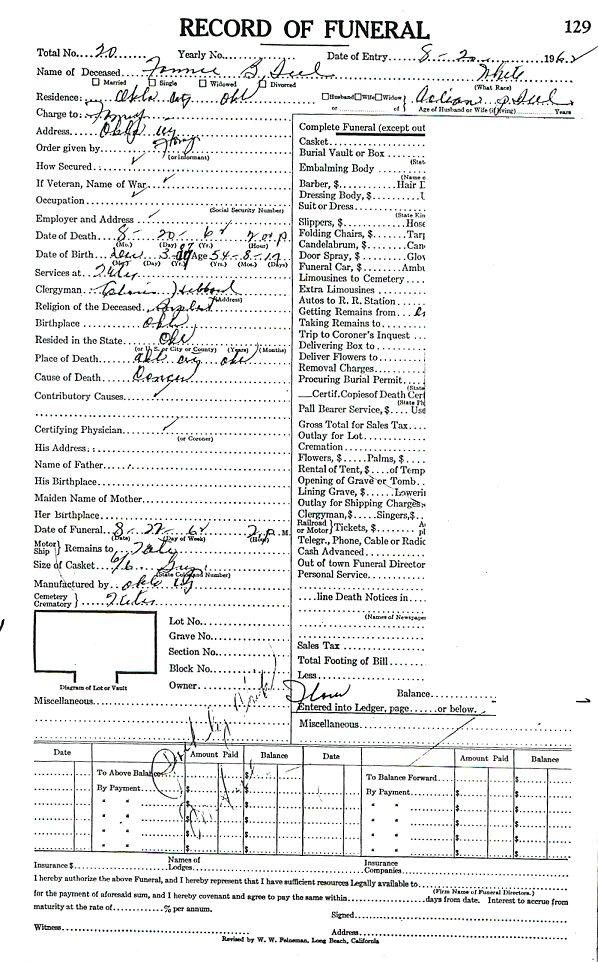 RECORD OF FUNERAL 129
Total No. 20 Yearly No. Date of Entry 8 - 20 1962
Name of Deceased B. White
Married Single Widowed Divorced (What Race)
Residence: Okla City Okl Husband Wife Widow
or of Age of Husband or Wife (if living) Years
Charge to:
Address Okla City
Order given by
(or informant)
How Secured
If Veteran, Name of War
Occupation
(Social Security Number)
Employer and Address
Date of Death 8 - 20 - 62 P
(Mo.) (Day) (Yr.) (Hour)
Date of Birth Dec 3 - 07 Age 54 - 8 - 17
(Mo.) (Day) (Yr.) (Yrs.) (Mos.) (Days)
Services at
Clergyman Hibbard
(Address)
Religion of the Deceased Baptist
Birthplace Okl
Resided in the State Okl
(or U. S. or City or County) (Years) (Months)
Place of Death Okl City Okl
Cause of Death Cancer
Contributory Causes
Certifying Physician
(or Coroner)
His Address
Name of Father
His Birthplace
Maiden Name of Mother
Her Birthplace
Date of Funeral 8 - 22 - 62 2 P. M.
(Date) (Day of Week) (Hour)
Motor Ship Remains to
Size of Casket 6/6
(State Color and Number)
Manufactured by Okla City
Cemetery
Crematory
Lot No.
Grave No.
Section No.
Block No.
Owner
Diagram of Lot or Vault
Miscellaneous
Complete Funeral (except out
Casket
Burial Vault or Box
(Stat
Embalming Body
(Name o
Barber, $ Hair D
Dressing Body, $
Suit or Dress
(State Kin
Slippers, $ Hose
Folding Chairs, $ Tarp
Candelabrum, $ Can
Door Spray, $ Glov
Funeral Car, $ Ambu
Limousines to Cemetery
Extra Limousines
Autos to R. R. Station
Getting Remains from
Taking Remains to
Trip to Coroner's Inquest
Delivering Box to
Deliver Flowers to
Removal Charges
Procuring Burial Permit
(State
Certif. Copies of Death Cert
(State Ph
Pall Bearer Service, $ Use
Gross Total for Sales Tax
Outlay for Lot
Cremation
Flowers, $ Palms, $
Rental of Tent, $ of Temp
Opening of Grave or Tomb
Lining Grave, $ Loweri
Outlay for Shipping Charges
Clergyman, $ Singers, $
Railroad or Motor Tickets, $
Telegr., Phone, Cable or Radio
Cash Advanced
Out of town Funeral Director
Personal Service
line Death Notices in
(Names of Newspaper
Sales Tax
Total Footing of Bill
Less
Balance
Entered into Ledger, page or below.
Miscellaneous
Date Amount Paid Balance Date Amount Paid Balance
To Above Balance $ To Balance Forward $
By Payment $ $ By Payment $
" " $ $ " " $
" " $ $ " " $
" " $ $ " " $
" " $ $ " " $
Insurance $ Names of Lodges Insurance Companies
I hereby authorize the above Funeral, and I hereby represent that I have sufficient resources Legally available to
(Firm Name of Funeral Directors.)
for the payment of aforesaid sum, and I hereby covenant and agree to pay the same within days from date. Interest to accrue from
maturity at the rate of % per annum.
Signed
Witness Address
Revised by W. W. Feineman, Long Beach, California